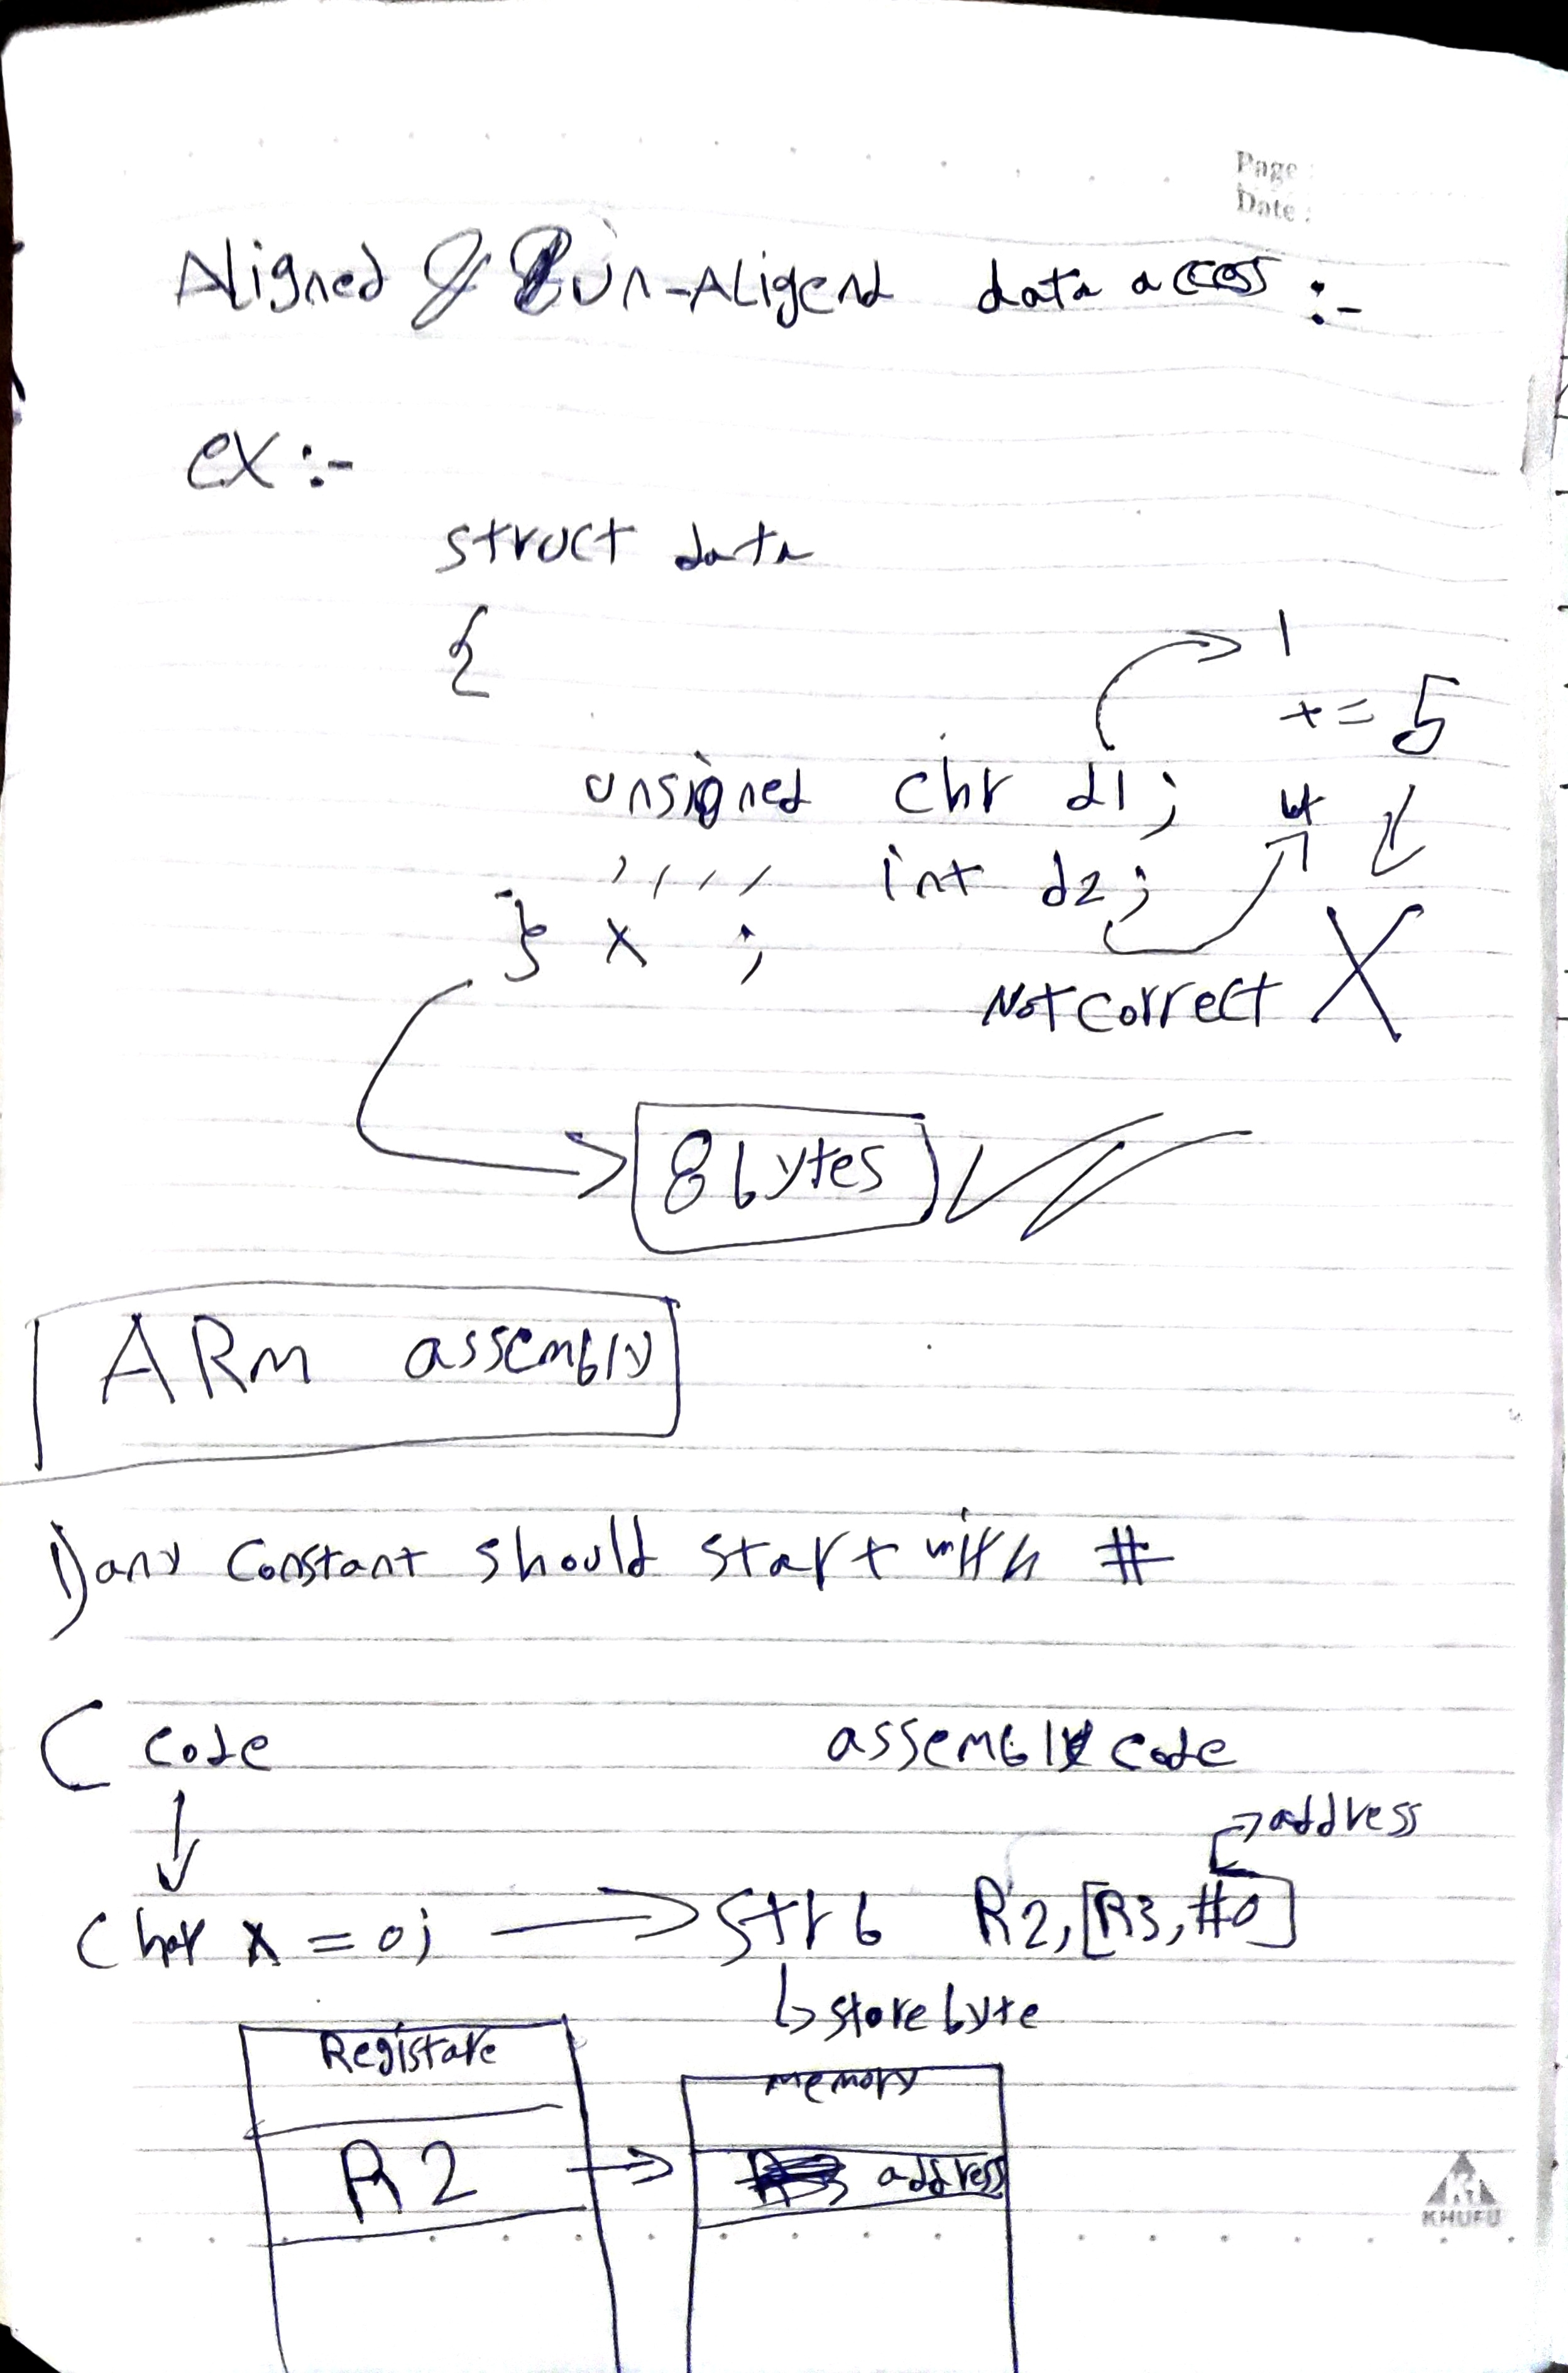 Page :
Date :
Aligned & un-Aligend data access :-
ex :-
struct data
{
1
+= 5
unsigned chr d1; 4
,,,, int d2;
} x ;
Not correct X
8 bytes
ARM assembly
1) any constant should start with #
C code assembly code
address
Char x = 0; strb R2,[R3,#0]
store byte
Registare
memory
R2
address
KHUFU